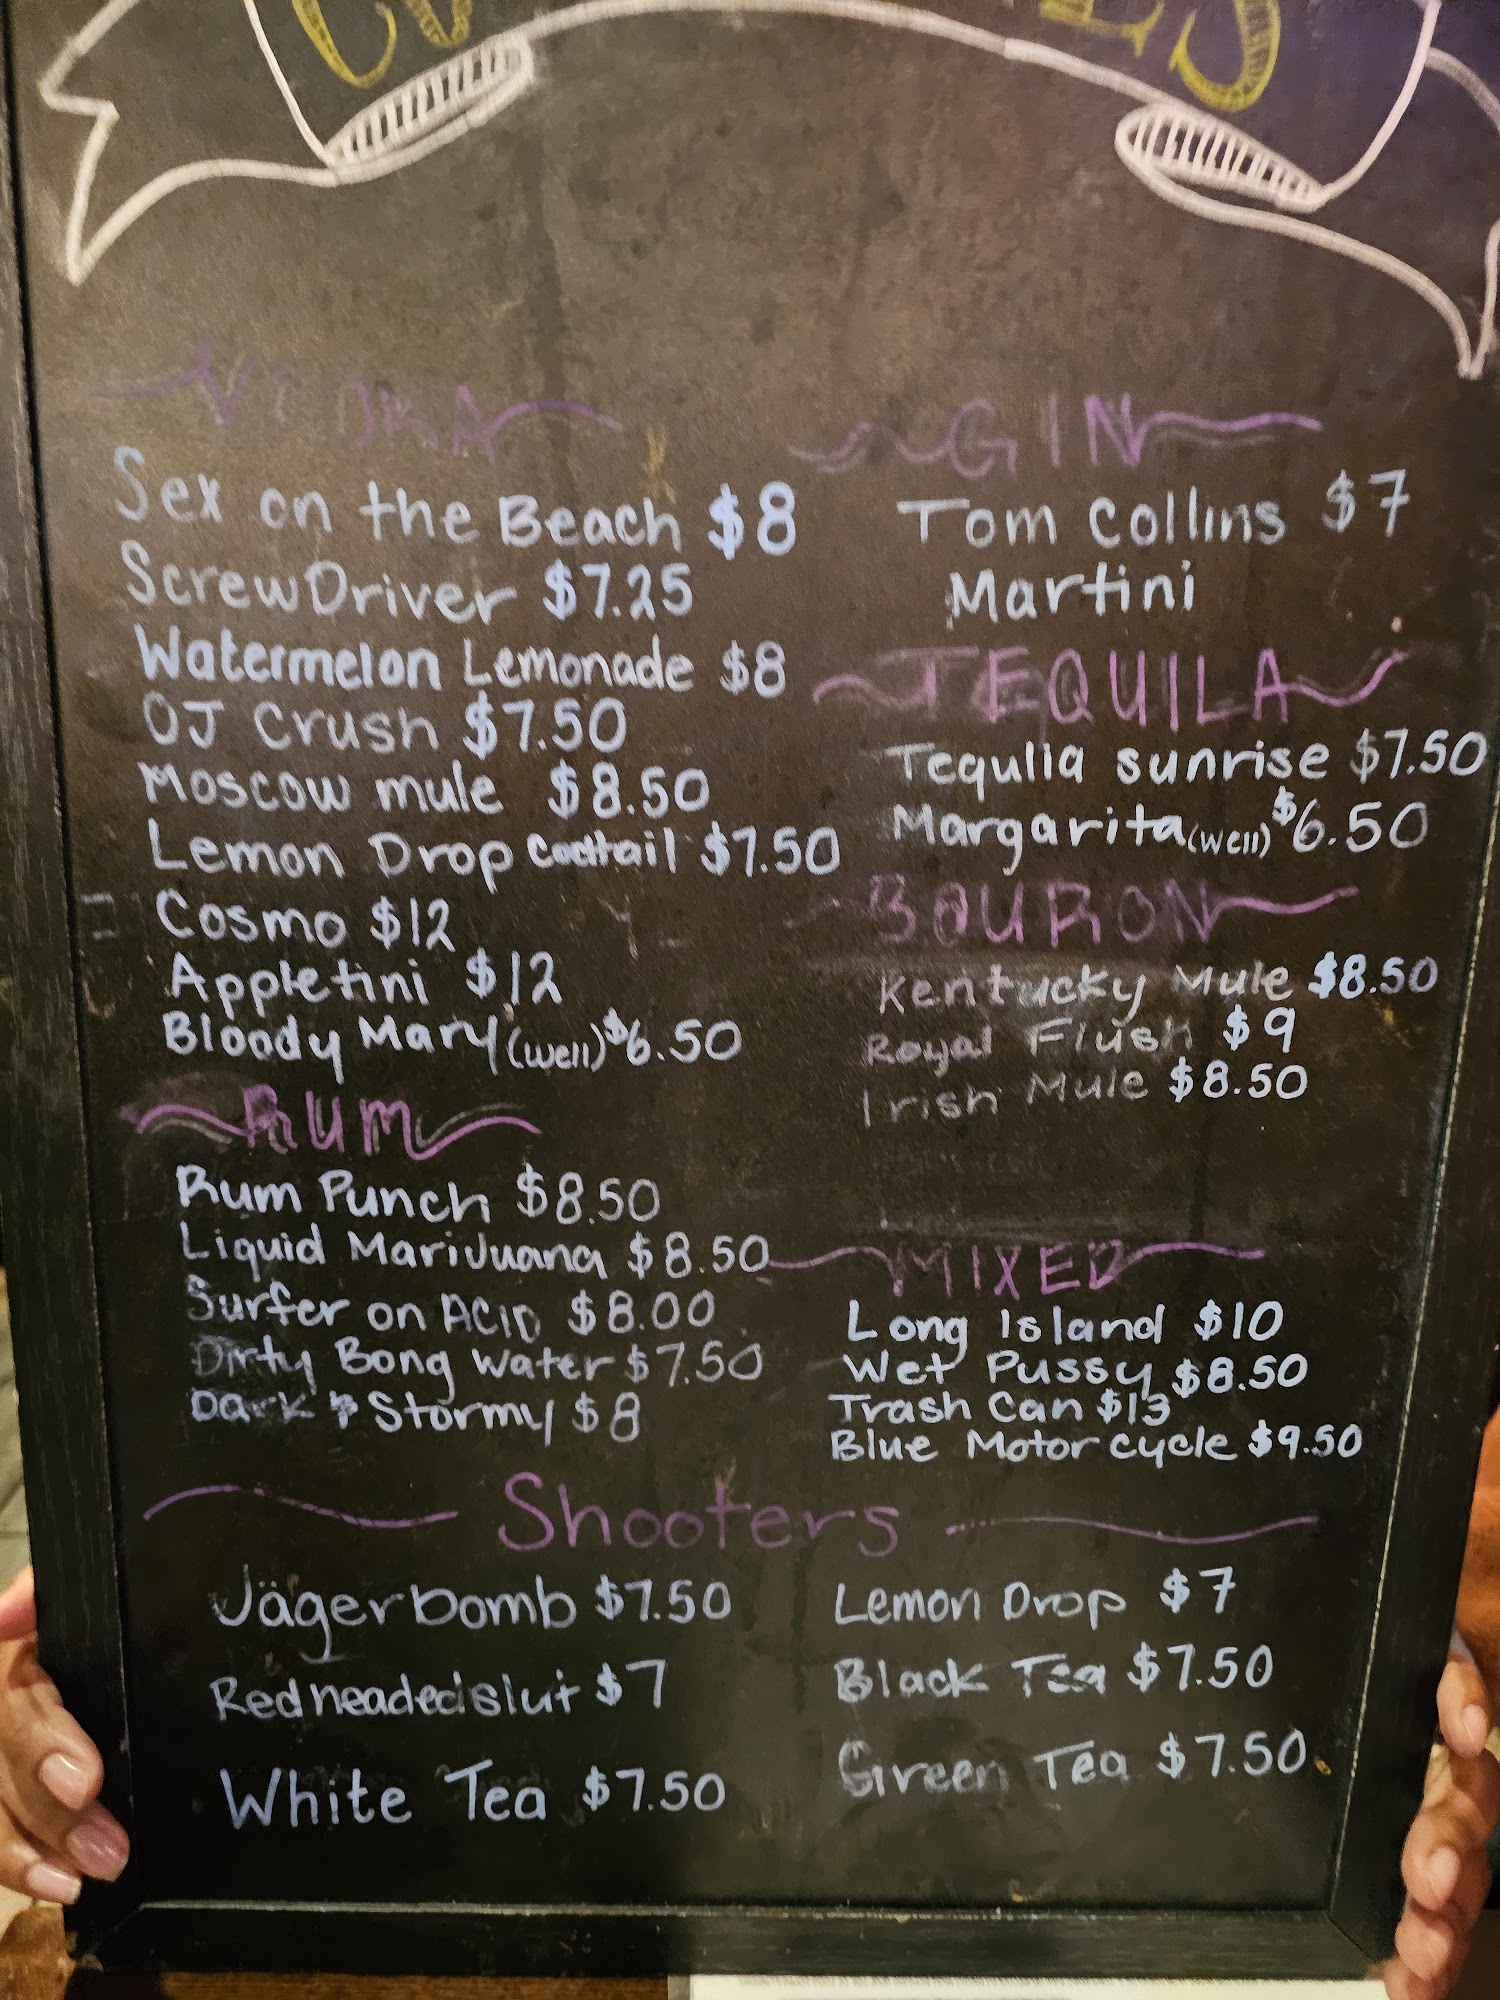 VODKA
Sex on the Beach $8
ScrewDriver $7.25
Watermelon Lemonade $8
OJ Crush $7.50
Moscow mule $8.50
Lemon Drop Cocktail $7.50
Cosmo $12
Appletini $12
Bloody Mary (well) $6.50
RUM
Rum Punch $8.50
Liquid Marijuana $8.50
Surfer on ACID $8.00
Dirty Bong Water $7.50
Dark & Stormy $8
GIN
Tom Collins $7
Martini
TEQUILA
Tequlla sunrise $7.50
Margarita (well) $6.50
BOURON
Kentucky Mule $8.50
Royal Flush $9
Irish Mule $8.50
MIXED
Long Island $10
Wet Pussy $8.50
Trash Can $13
Blue Motorcycle $9.50
Shooters
Jägerbomb $7.50
Redheadedslut $7
White Tea $7.50
Lemon Drop $7
Black Tea $7.50
Green Tea $7.50